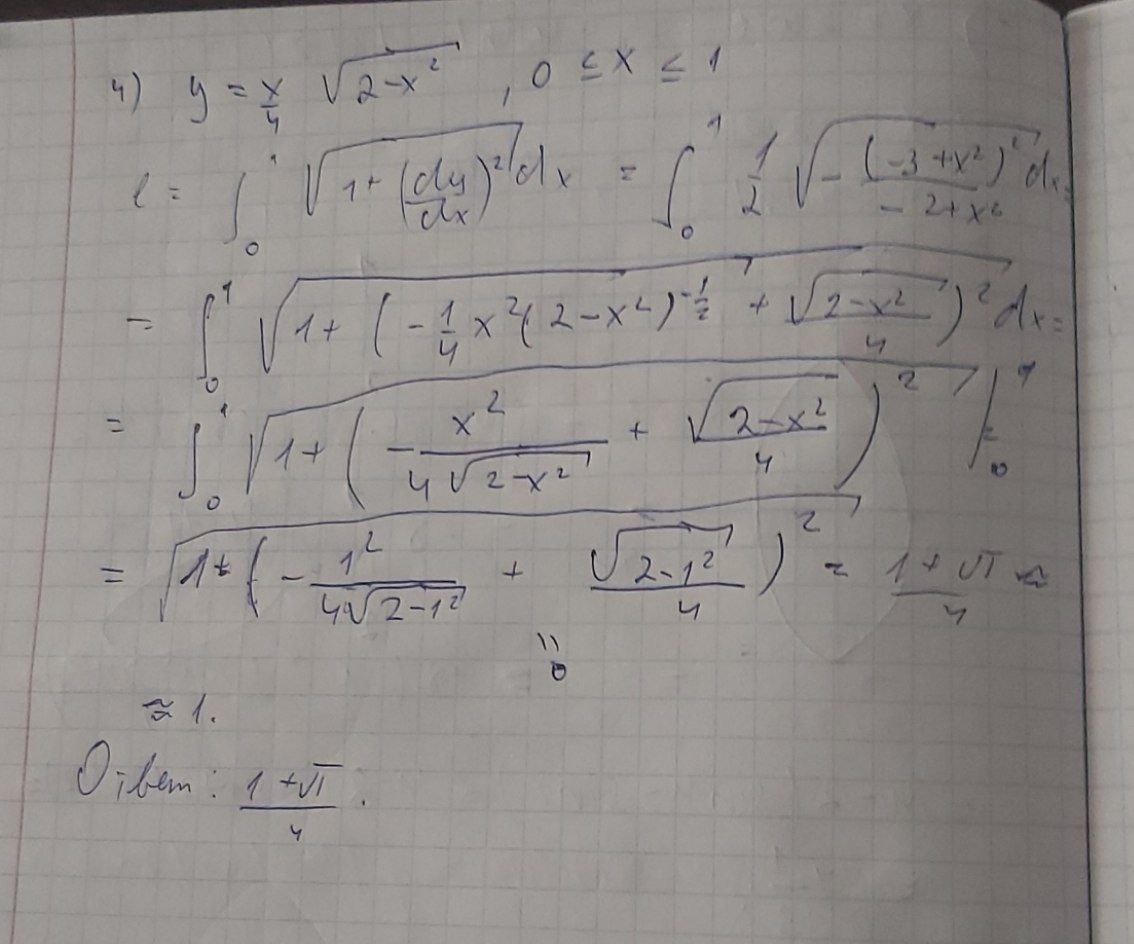 4) y = x/4 √(2-x²) , 0 ≤ x ≤ 1
l = ∫₀¹ √(1+(dy/dx)²) dx = ∫₀¹ 1/2 √(-(-3+x²)²/(-2+x²)) dx =
= ∫₀¹ √(1+(-1/4 x²(2-x²)^(-1/2) + √(2-x²)/4)²) dx =
= ∫₀¹ √(1+(-x²/(4√(2-x²)) + √(2-x²)/4)²) |₀¹ =
= √(1+(-1²/(4√(2-1²)) + √(2-1²)/4)²) = (1+√1)/4 ≈
"0
≈ 1.
Ответ: (1+√1)/4.